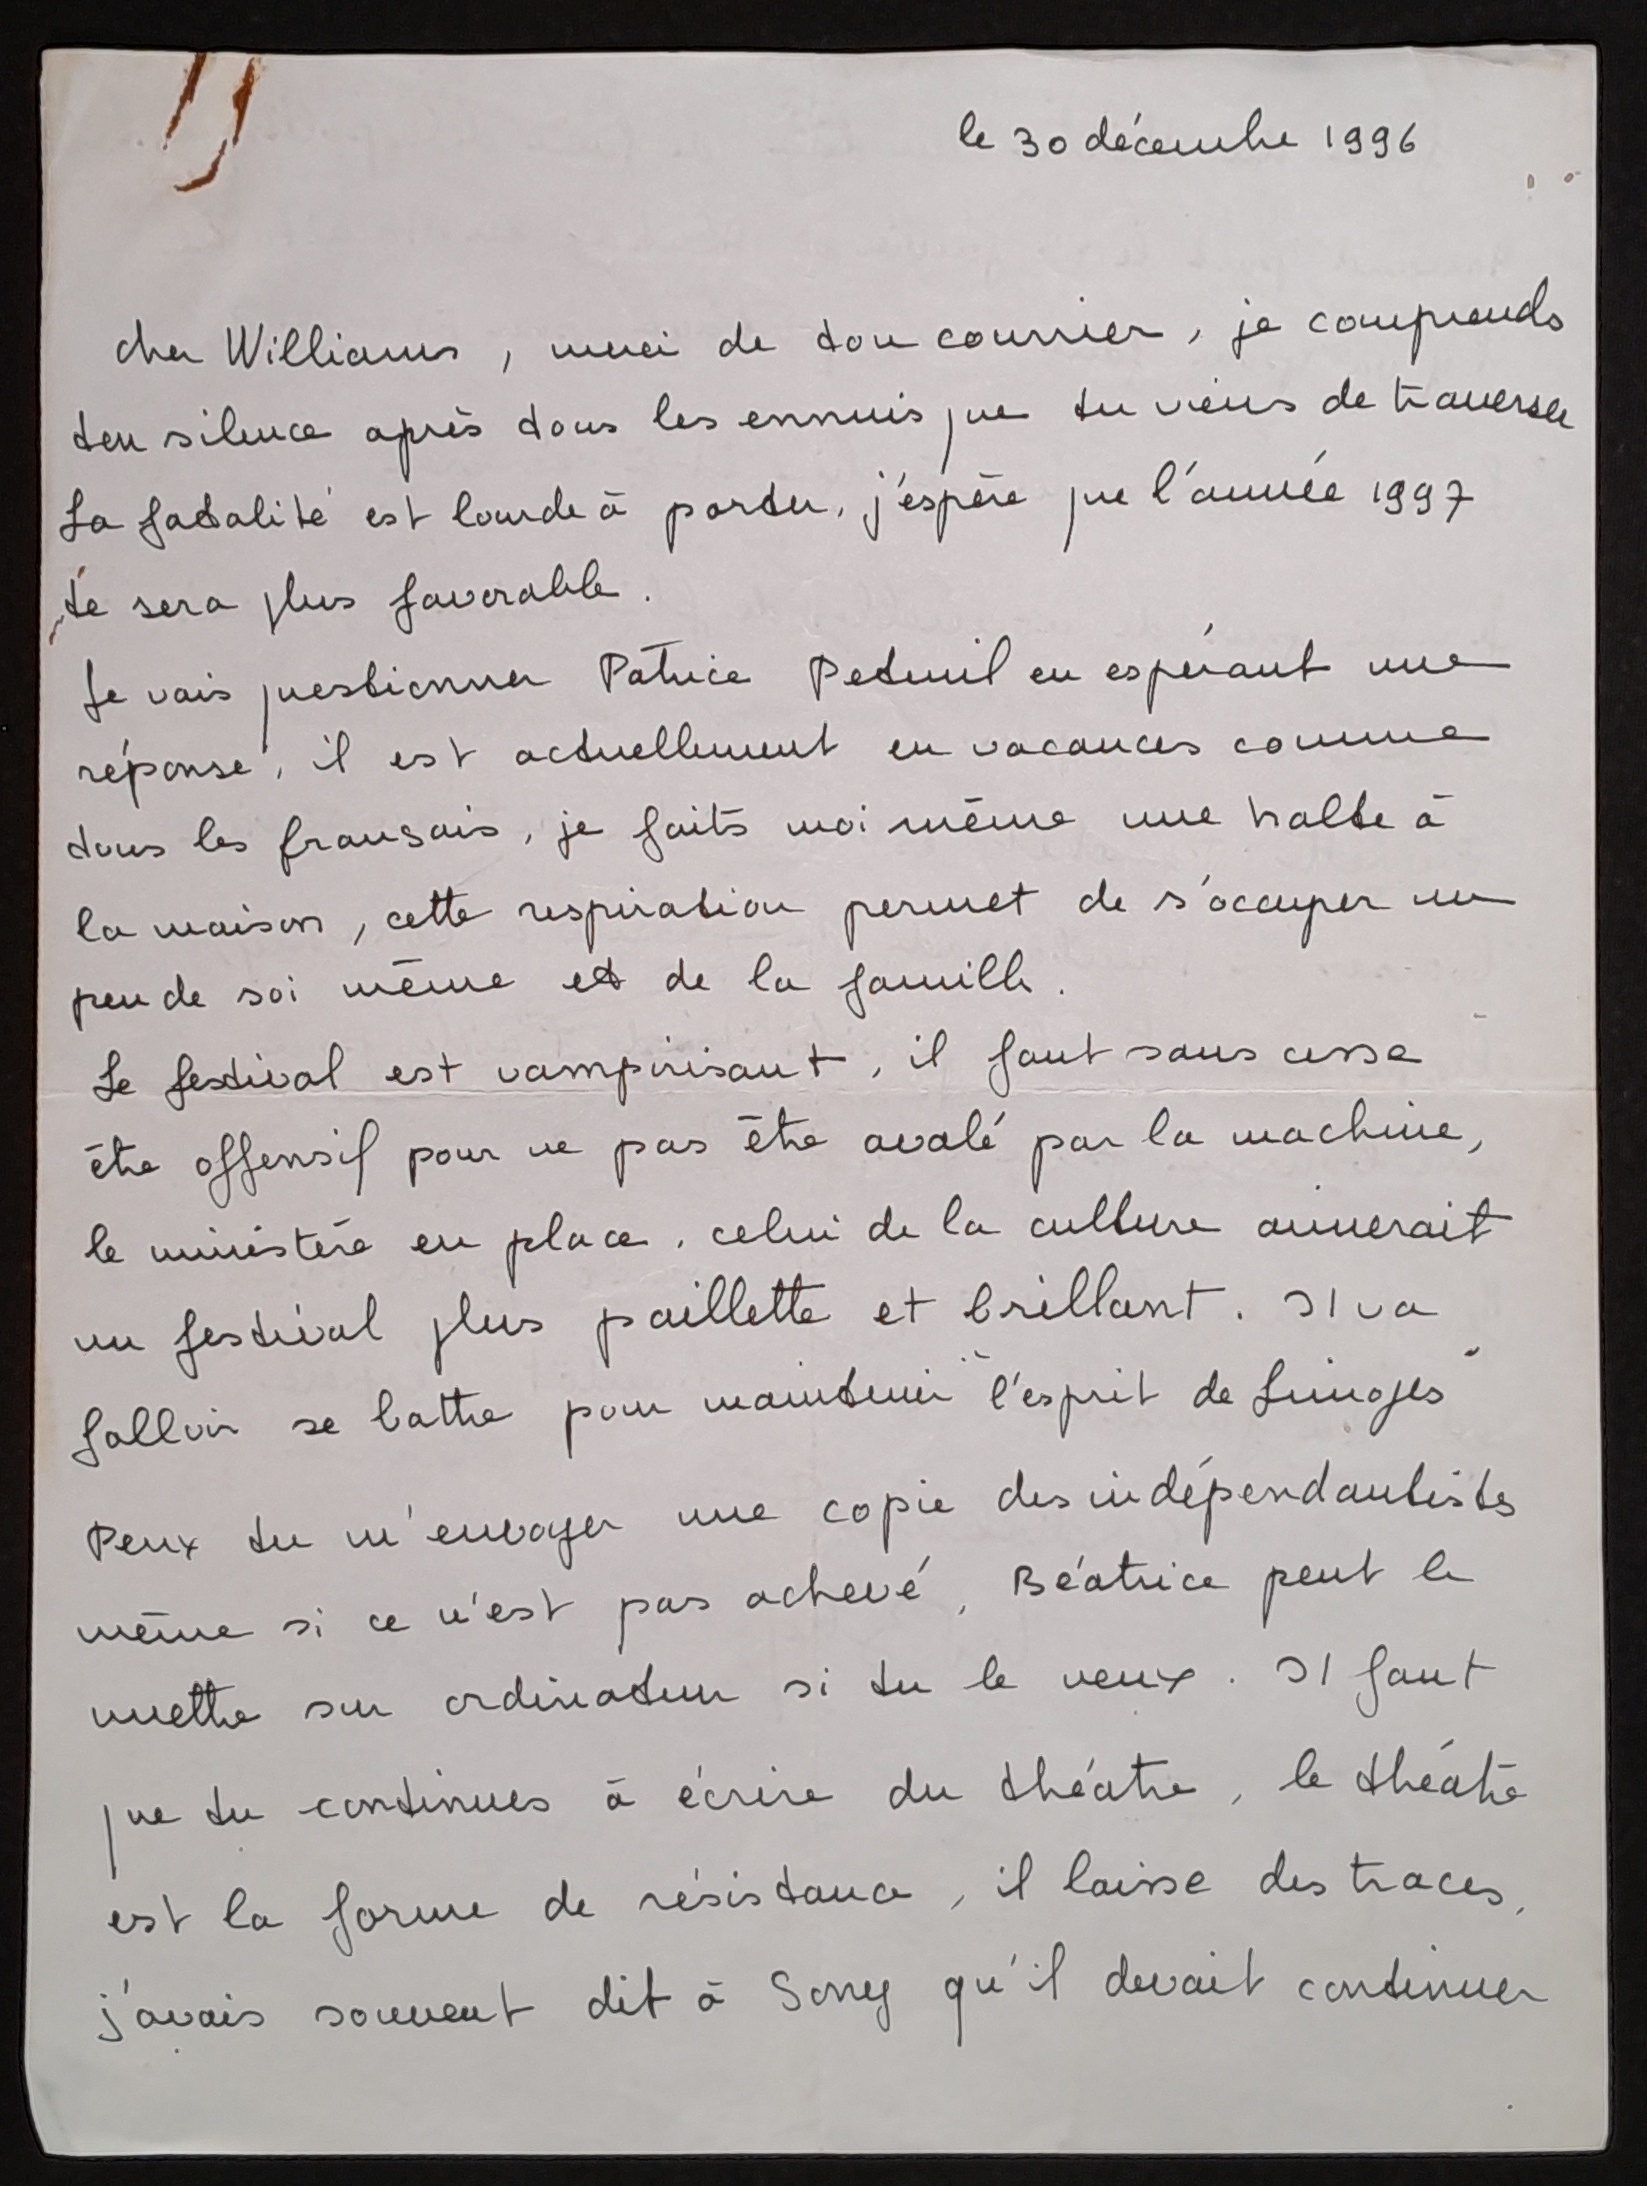 le 30 décembre 1996
cher Williams, merci de ton courrier, je comprends
ton silence après tous les ennuis que tu viens de traverser
La fatalité est lourde à porter, j'espère que l'année 1997
te sera plus favorable.
Je vais questionner Patrice Peteuil en espérant une
réponse, il est actuellement en vacances comme
tous les français, je faits moi même une halte à
la maison, cette respiration permet de s'occuper un
peu de soi même et de la famille.
Le festival est vampirisant, il faut sans cesse
être offensif pour ne pas être avalé par la machine,
le ministère en place, celui de la culture aimerait
un festival plus paillette et brillant. Il va
falloir se battre pour maintenir "l'esprit de Limoges"
Peux tu m'envoyer une copie des indépendantistes
même si ce n'est pas achevé, Béatrice peut le
mettre sur ordinateur si tu le veux. Il faut
que tu continues à écrire du théâtre, le théâtre
est la forme de résistance, il laisse des traces,
j'avais souvent dit à Sony qu'il devait continuer